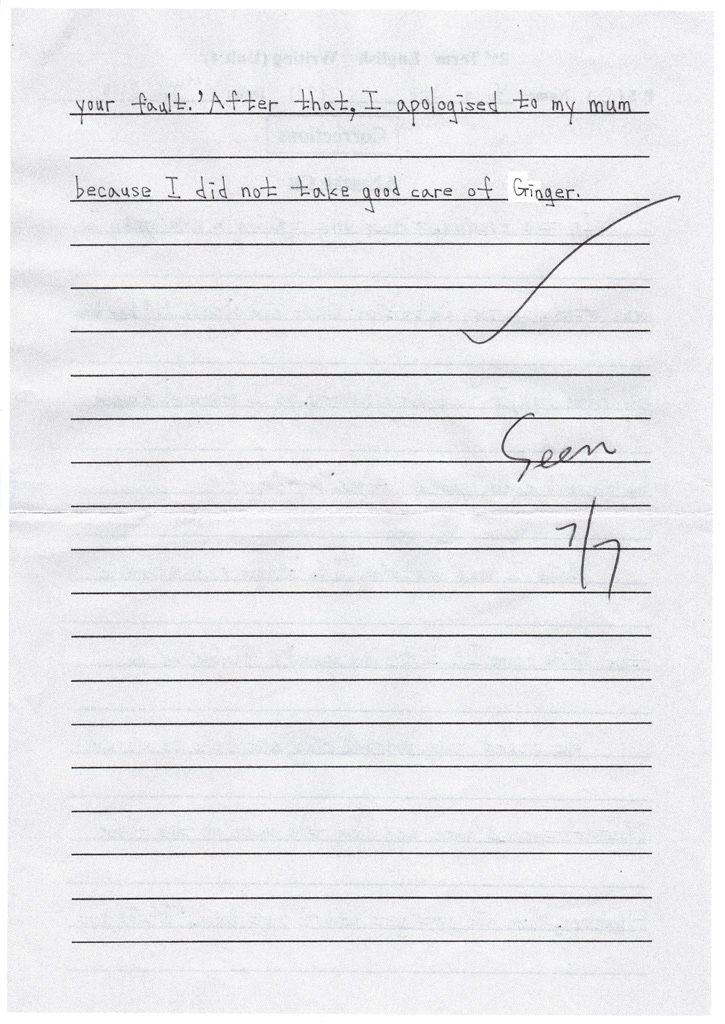 your fault.' After that, I apologised to my mum
because I did not take good care of Ginger.
Seen
7/7